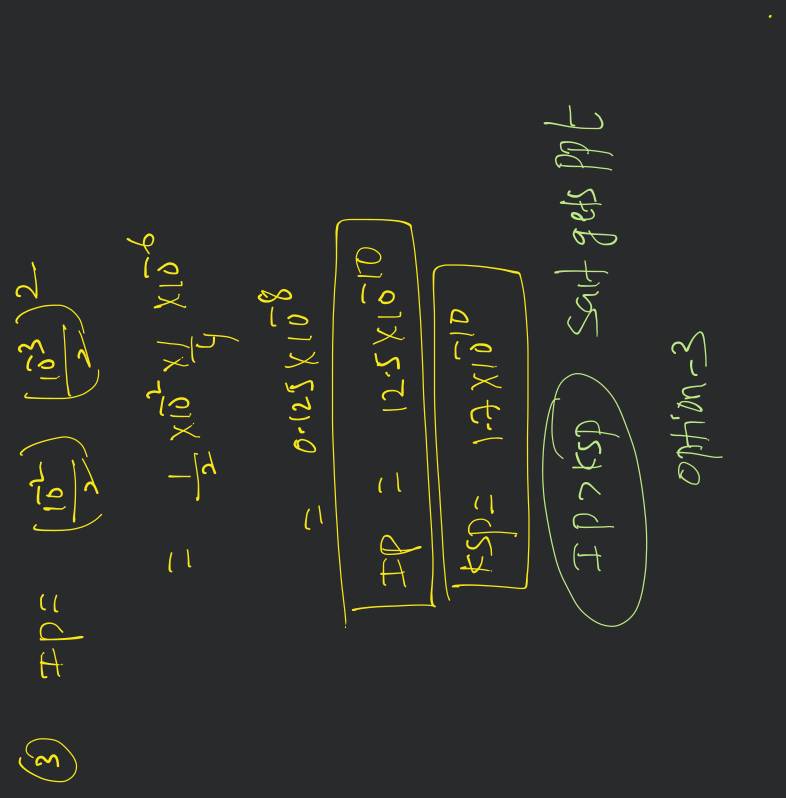 ③ IP = (10⁻²/2) (10⁻³/2)²
= 1/2 × 10⁻² × 1/4 × 10⁻⁶
= 0.125 × 10⁻⁸
IP = 12.5 × 10⁻¹⁰
Ksp = 1.7 × 10⁻¹⁰
IP > Ksp salt gets ppt
option-3